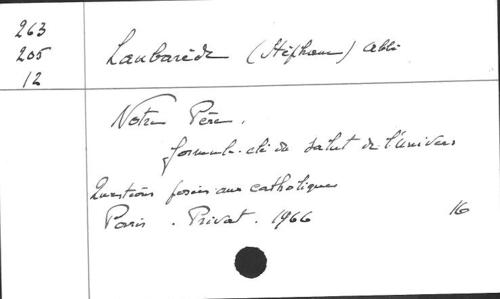 263
205
12
Laubarède (Stéphane) Abbé
Notre Père.
formule-clé du salut de l'Univers
Questions posées aux catholiques
Paris. Privat. 1966
16